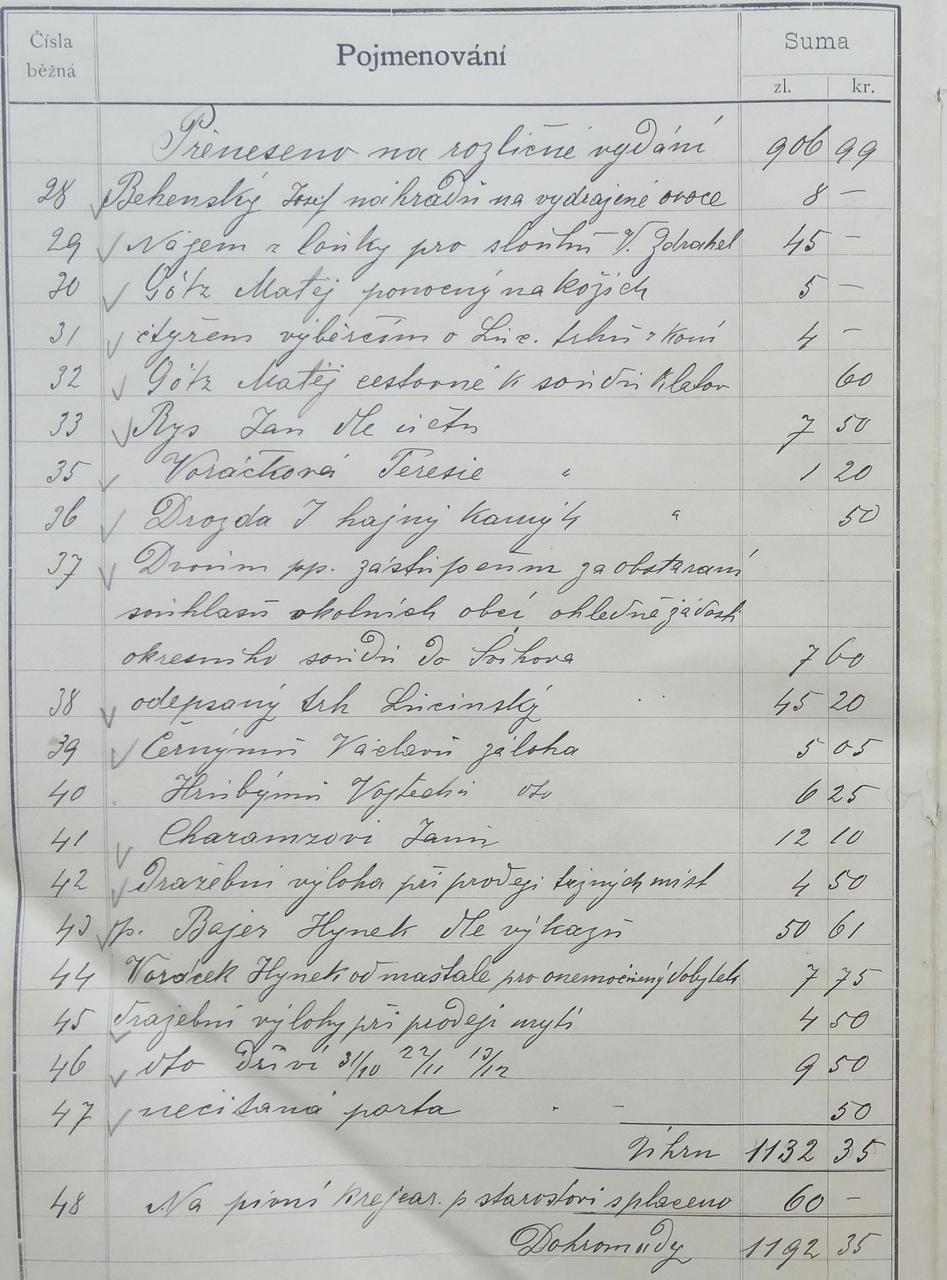 Čísla běžná Pojmenování Suma
zl. kr.
Přeneseno na rozličné vydání 906 99
28 Behenský Josef náhradů na vydrajené ovoce 8 —
29 Nájem z louky pro slouhu V. Zdrahel 45 —
30 Götz Matěj ponocný na kožich 5 —
31 čtyřem výběrčím o Luc. trhu z koní 4 —
32 Götz Matěj cestovné k soudu Klatov 60
33 Rys Jan dle účtu 7 50
35 Voráčková Teresie " 1 20
36 Drozda J hajný Kamýk " 50
37 Dvoum pp. zástupcům za obstaraní
souhlasu okolních obcí ohledně žádosti
okresního soudu do Švihova 7 60
38 odepsaný trh Lucinský 45 20
39 Černýmu Václavu záloha 5 05
40 Hrubýmu Vojtěchu dto 6 25
41 Charamzovi Janu 12 10
42 Dražební výloha při prodeji tržných míst 4 50
43 p. Bajer Hynek dle výkazu 50 61
44 Vorácek Hynek od maštale pro onemocněný dobytek 7 75
45 Dražební výlohy při prodeji mýtí 4 50
46 dto dříví 31/10 22/11 13/12 9 50
47 necitaná porta . — 50
Úhrn 1132 35
48 Na pivní krejcar. p starostovi splaceno 60 —
Dohromady 1192 35